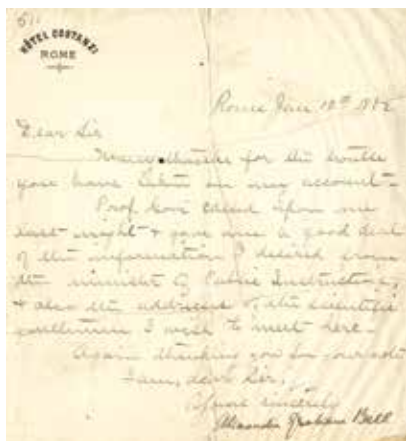 HÔTEL COSTANZI
ROME
Rome Jan 12th 1882
Dear Sir
Many thanks for the trouble
you have taken on my account -
Prof. Govi called upon me
last night & gave me a good deal
of the information I desired from
the minister of Public Instruction,
& also the addresses of the scientific
gentlemen I wish to meet here -
Again thanking you for your
I am, dear Sir,
Yours sincerely
Alexander Graham Bell